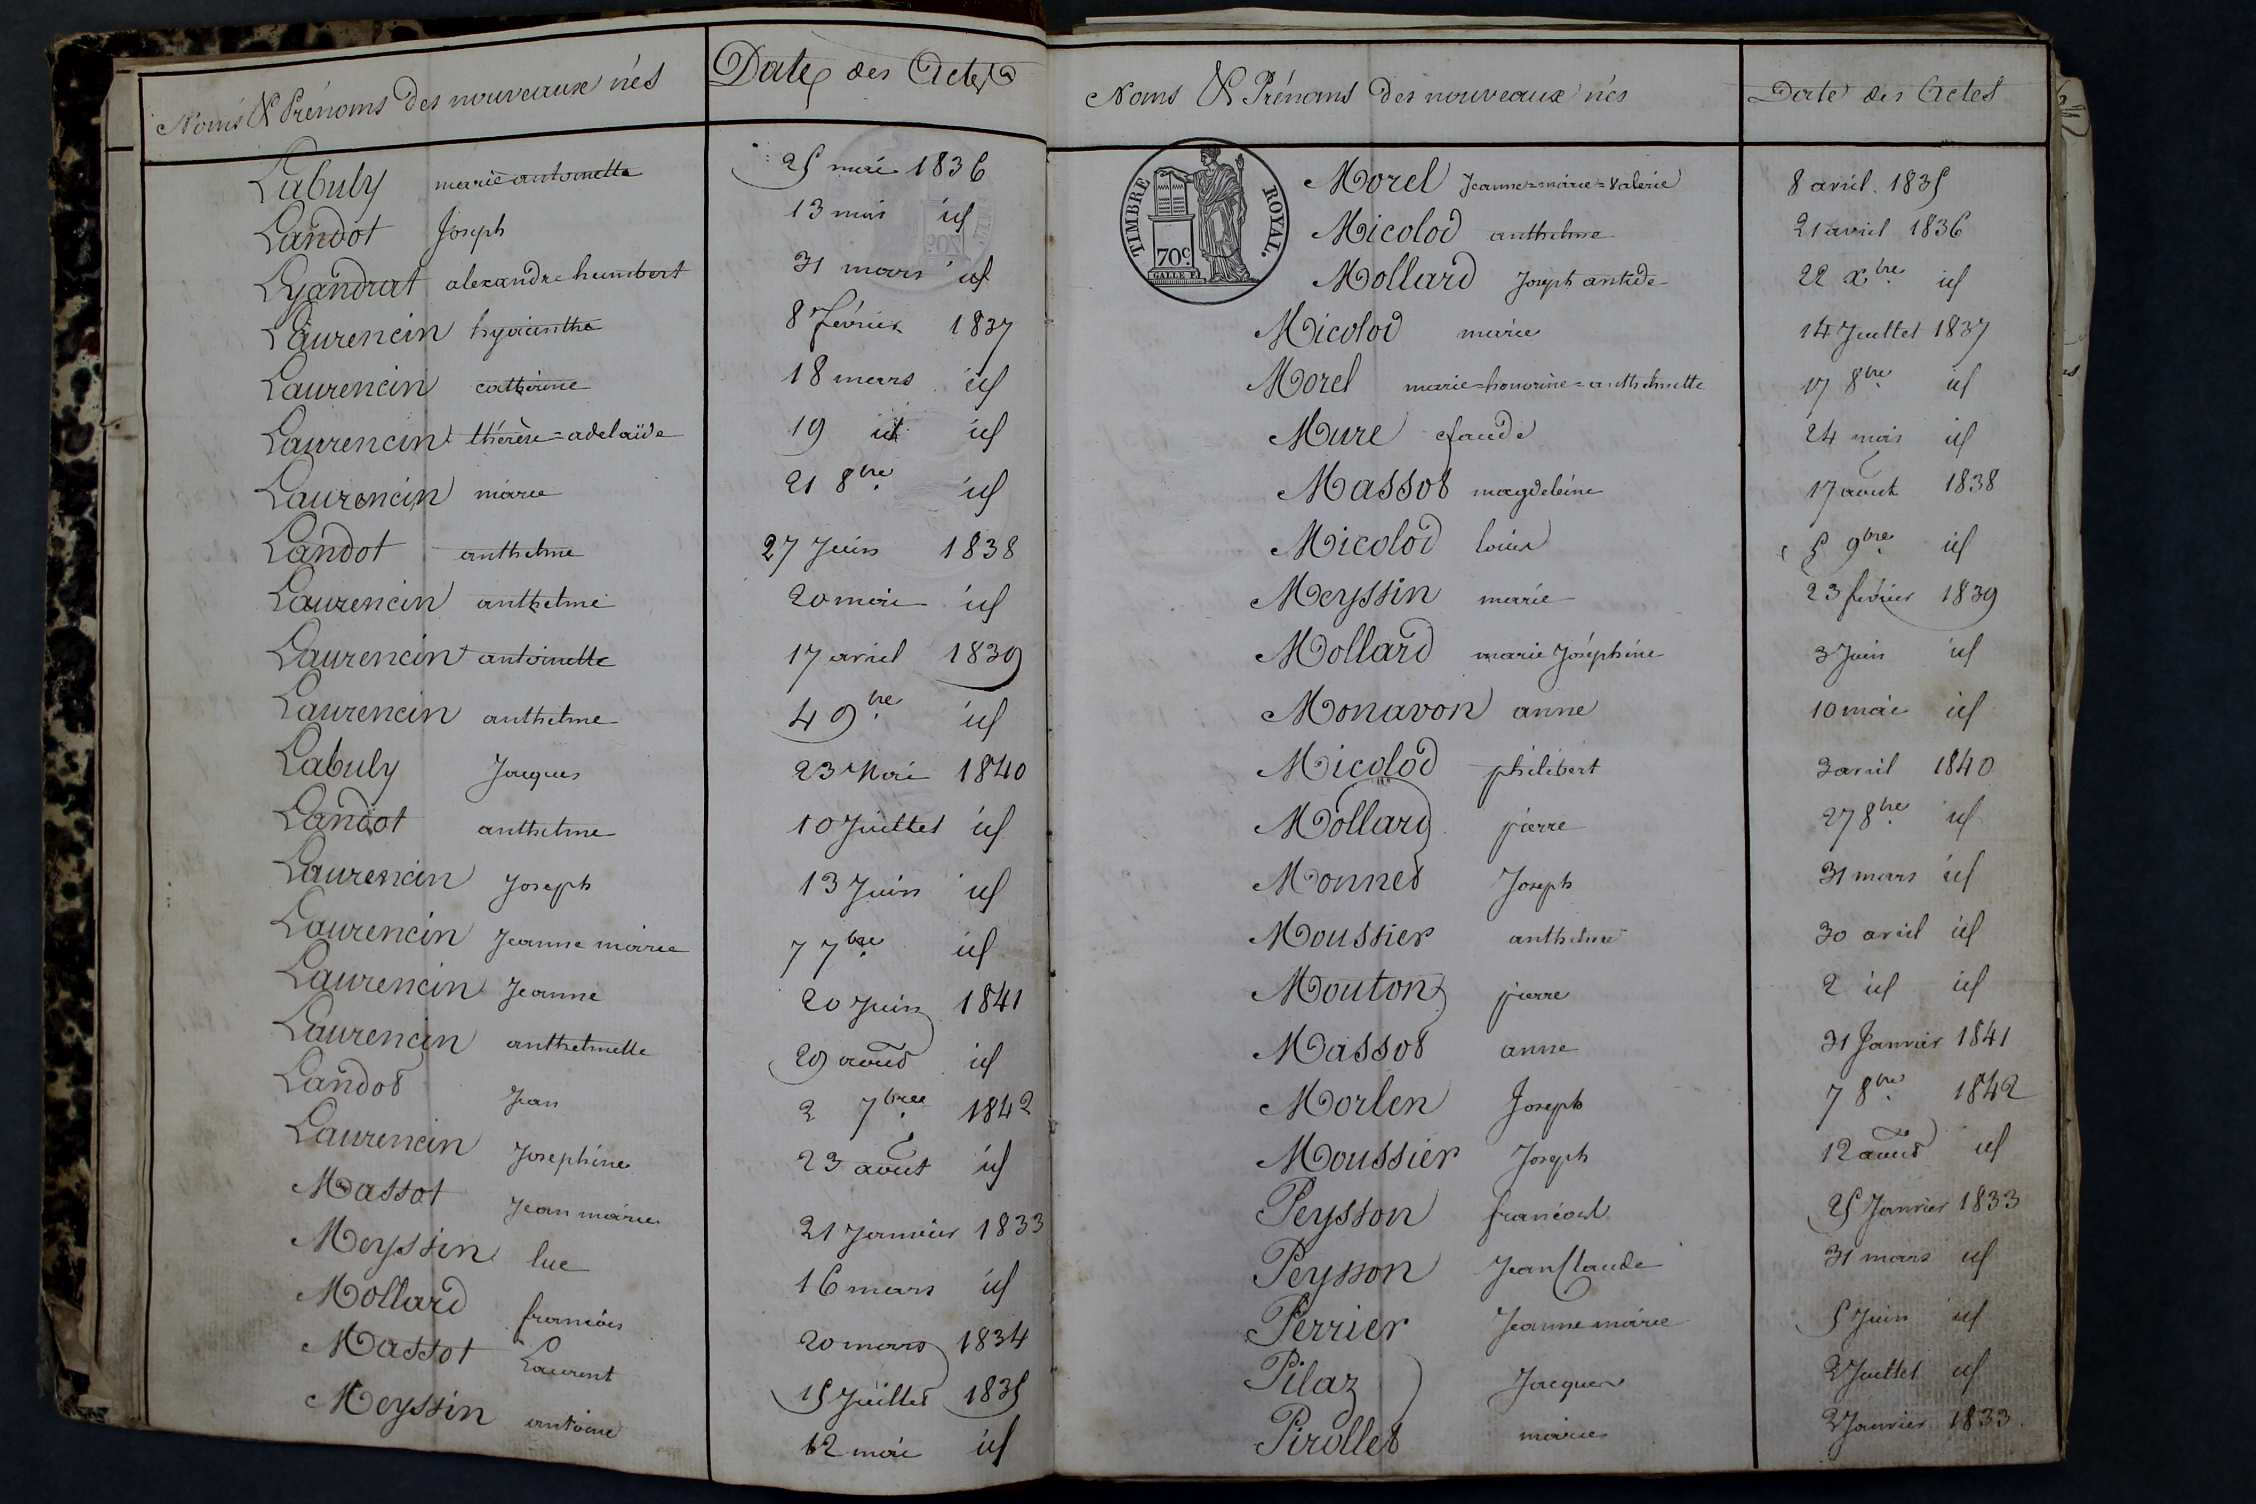 Noms & Prénoms des nouveaux nés Date des Actes
Labuly marie antoinette 25 mai 1836
Landot Joseph 13 mai id
Lyandrat alexandre humbert 31 mars id
Laurencin hyacinthe 8 février 1837
Laurencin catherine 18 mars id
Laurencin thérèse=adelaïde 19 id id
Laurencin marie 21 8bre id
Landot anthelme 27 Juin 1838
Laurencin anthelme 20 mai id
Laurencin antoinette 17 avril 1839
Laurencin anthelme 4 9bre id
Labuly Jacques 23 Mai 1840
Landot anthelme 10 Juillet id
Laurencin Joseph 13 Juin id
Laurencin Jeanne marie 7 7bre id
Laurencin Jeanne 20 Juin 1841
Laurencin anthelmette 29 août id
Landot Jean 2 7bre 1842
Laurencin Josephine 23 août id
Massot Jean marie 21 Janvier 1833
Meyssin luc 16 mars id
Mollard francois 20 mars 1834
Massot Laurent 15 Juillet 1835
Meyssin antoine 12 mai id
Noms & Prénoms des nouveaux nés Date des Actes
TIMBRE ROYAL.
70c.
GALLE F.
Morel Jeanne=marie=Valerie 8 avril 1835
Micolod anthelme 21 avril 1836
Mollard Joseph antide 22 xbre id
Micolod marie 14 Juillet 1837
Morel marie=honorine=anthelmette 17 8bre id
Mure claude 24 mai id
Massot magdeleine 17 août 1838
Micolod louis 5 9bre id
Meyssin marie 23 février 1839
Mollard marie Joséphine 3 Juin id
Monavon anne 10 mai id
Micolod philibert 3 avril 1840
Mollard pierre 27 8bre id
Monnet Joseph 31 mars id
Moussier anthelme 30 avril id
Mouton pierre 2 id id
Massot anne 31 Janvier 1841
Morlen Joseph 7 8bre 1842
Moussier Joseph 12 août id
Peysson francois 25 Janvier 1833
Peysson Jean Claude 31 mars id
Perrier Jeanne marie 5 Juin id
Pilaz Jacques 2 Juillet id
Pirollet marie 2 Janvier 1833